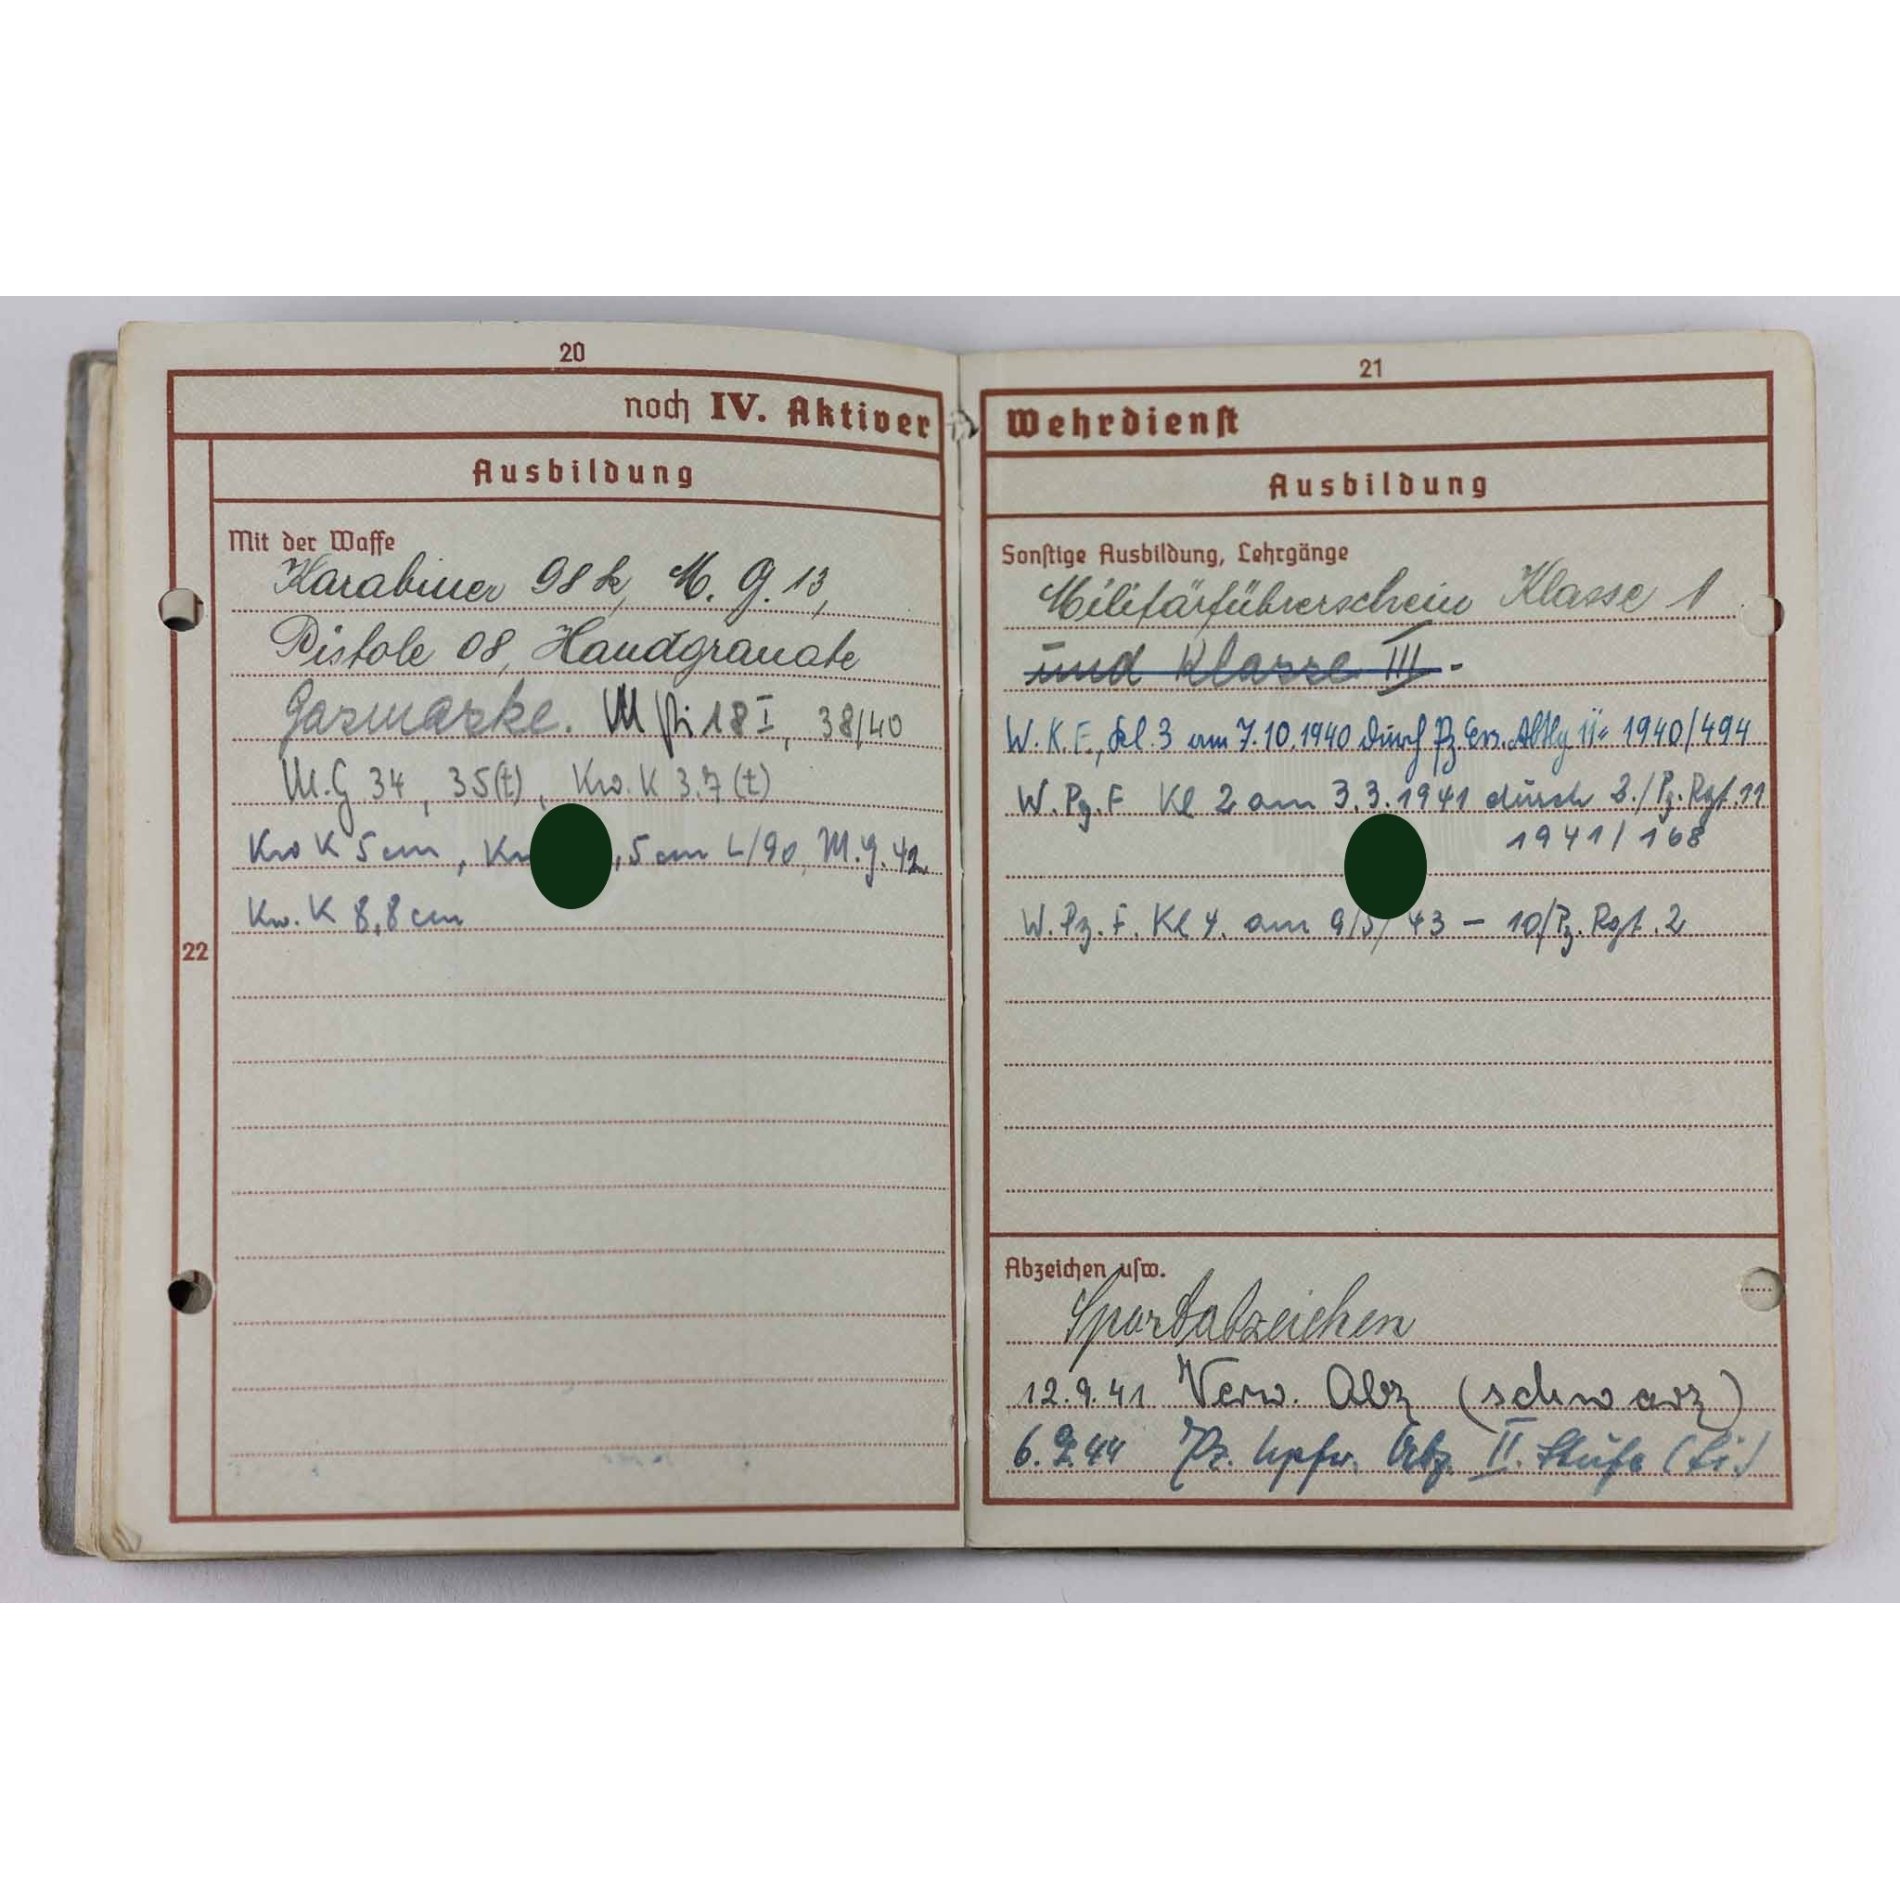 20
noch IV. Aktiver
Ausbildung
22
Mit der Waffe
Karabiner 98k, M. G. 13,
Pistole 08, Handgranate
Gasmaske. M Pi 18 I, 38/40
M.G 34, 35(t), Kw. K 3.7 (t)
Kw K 5 cm, ,5 cm L/90, M.G. 42
Kw. K 8,8 cm
21
Wehrdienst
Ausbildung
Sonstige Ausbildung, Lehrgänge
Militärführerschein Klasse 1
und Klasse III -
W. K. F., Kl. 3 am 7.10.1940 durch Pz. Ers. Abtlg 11 1940/494
W. Pz. F Kl 2 am 3.3.1941 durch 3./Pz. Rgt. 11
1941/168
W. Pz. F. Kl 4. am 9/5/43 – 10/Pz. Rgt. 2
Abzeichen usw.
Sportabzeichen
12.9.41 Verw. Abz (schwarz)
6. 9. 44 Pz. Kpfw. Abz. II. Stufe (Si.)